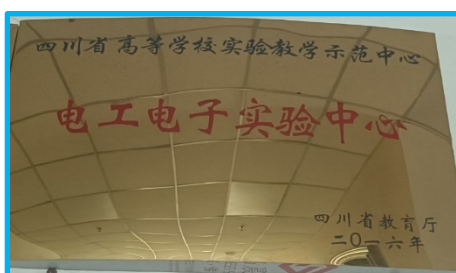 四川省高等学校实验教学示范中心
电工电子实验中心
四川省教育厅
二〇一六年